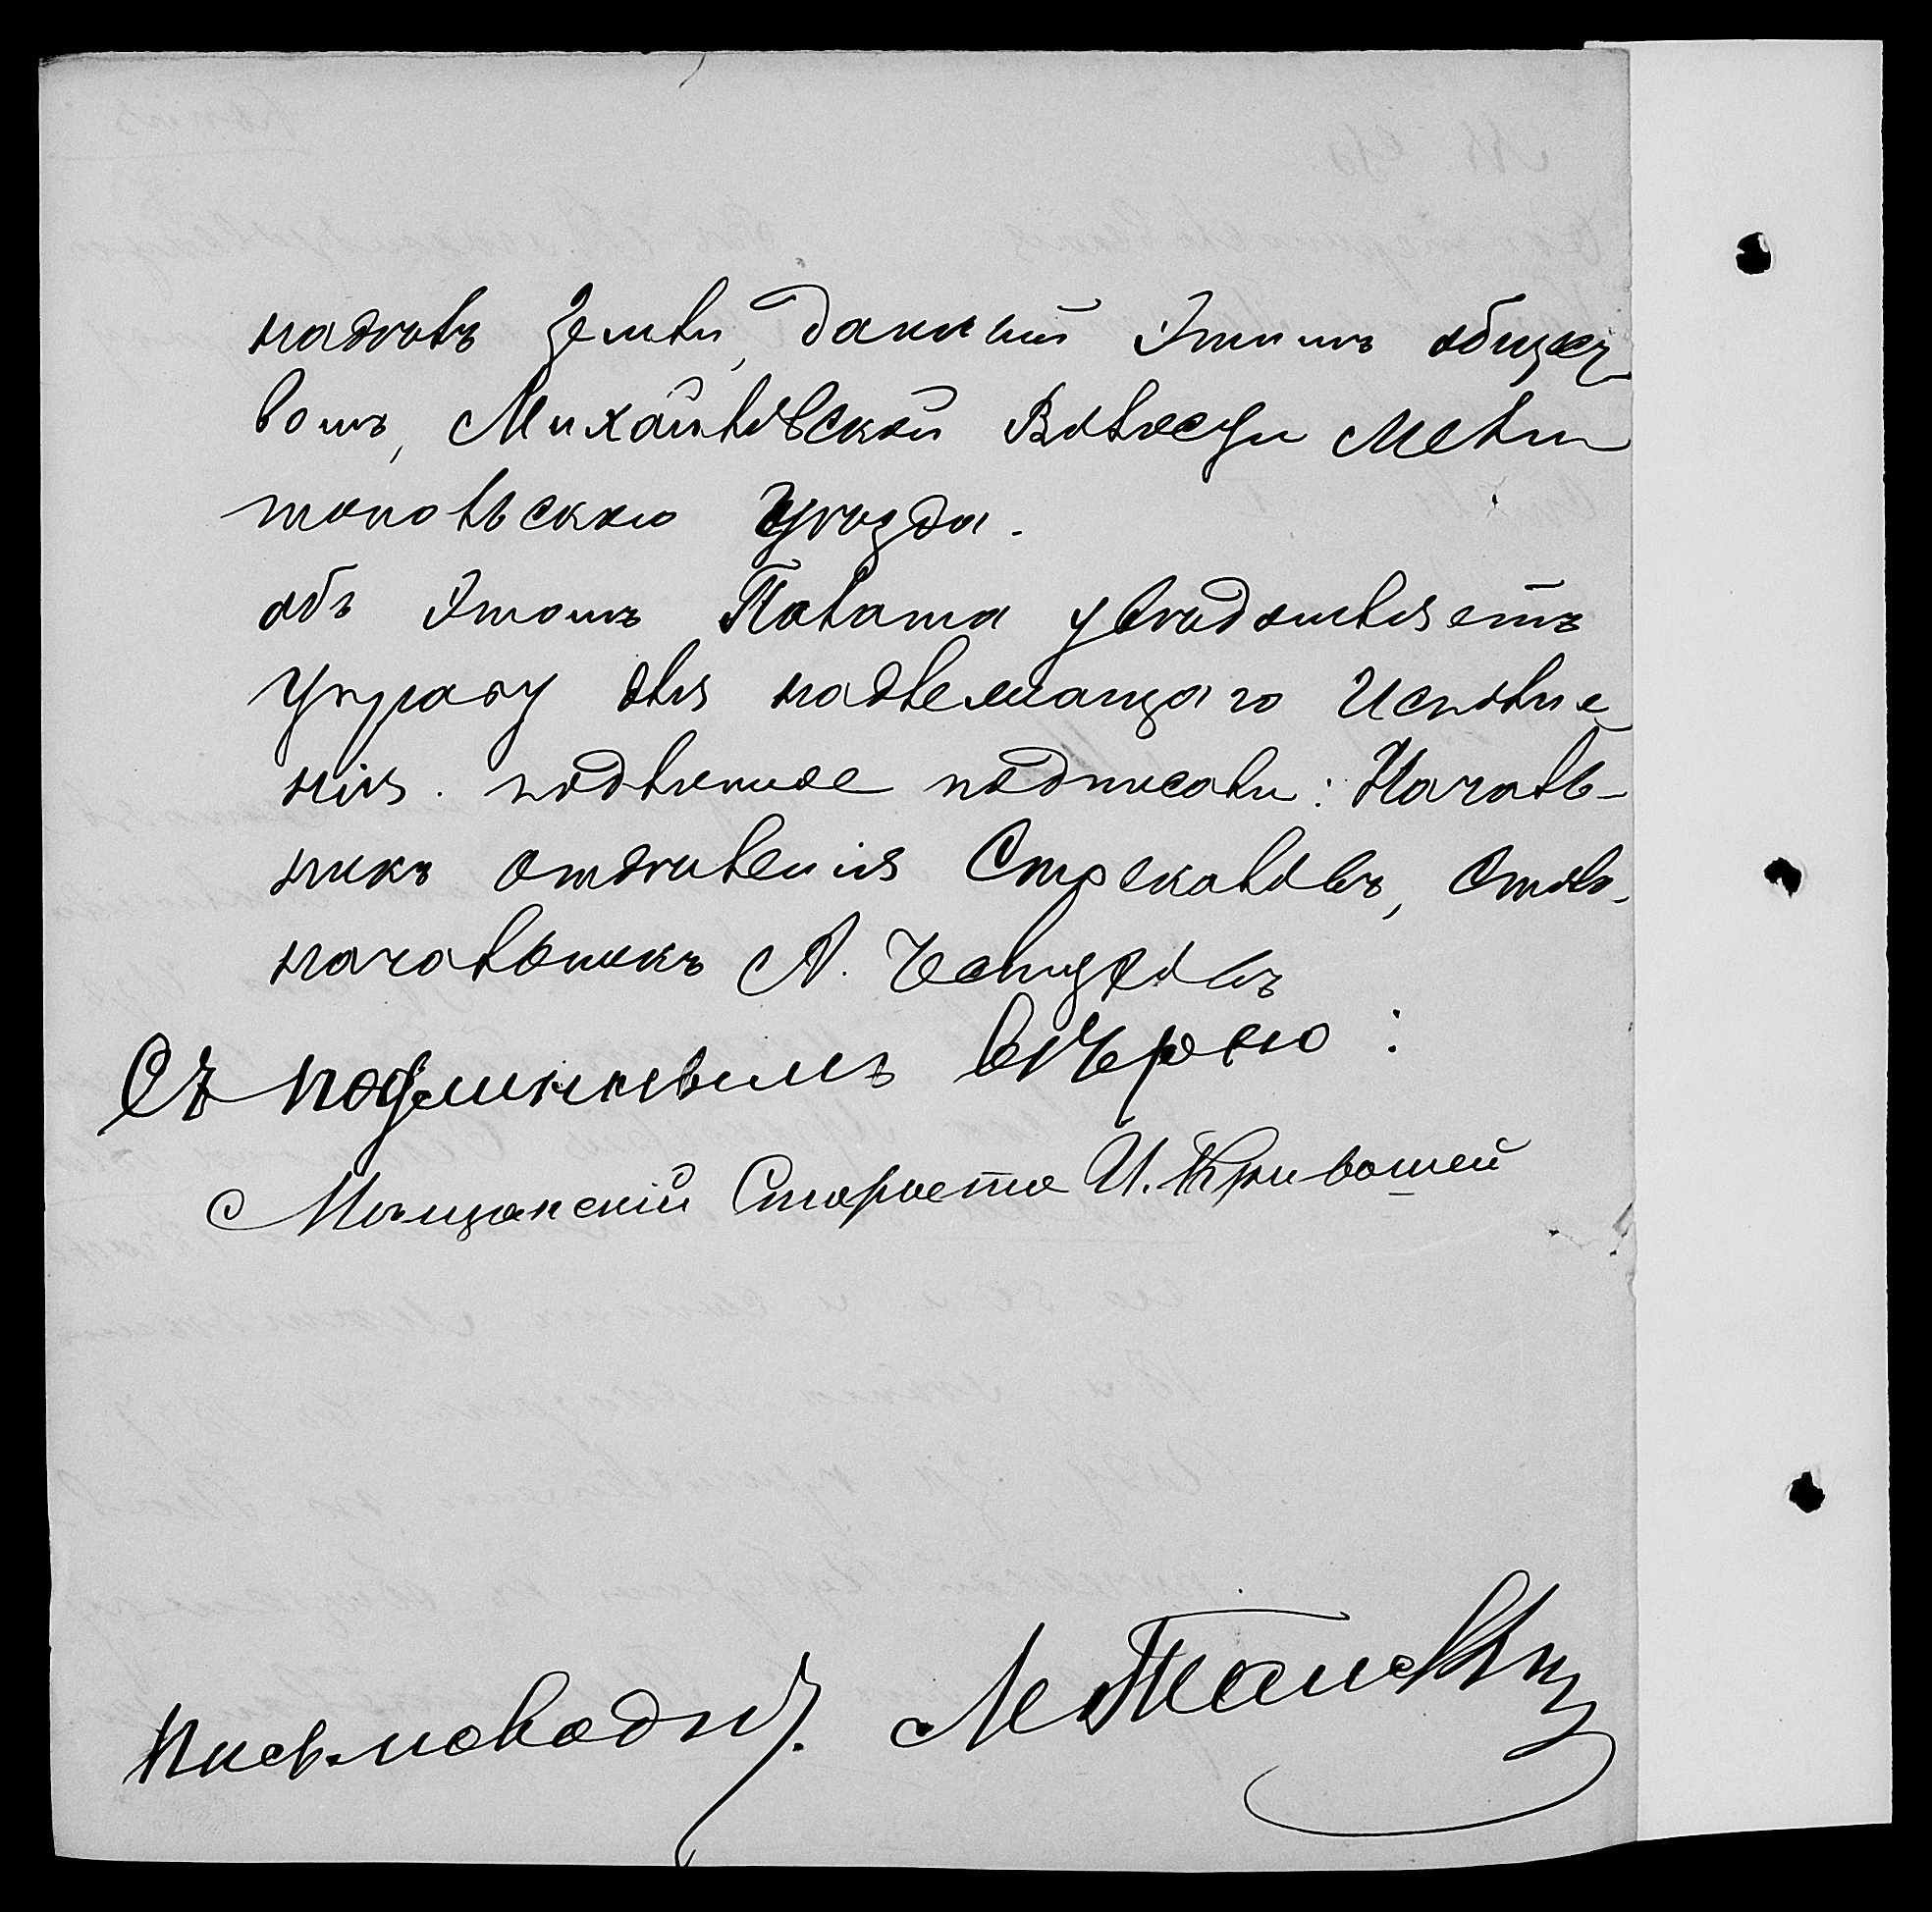 надѣлъ земли, данный этимъ общес
вомъ, Михайловской Волости Мели
топольскаго уѣзда.
объ этомъ Палата увѣдомляетъ
Управу для надлежащаго Исполне
нія. подлинное подписали: Началь-
никъ отдѣленія Стрекаловъ, Стол.
начальникъ А.
Съ подлиннымъ вѣрно:
Мѣщанскій Староста И. Кривошей
Письмовод.